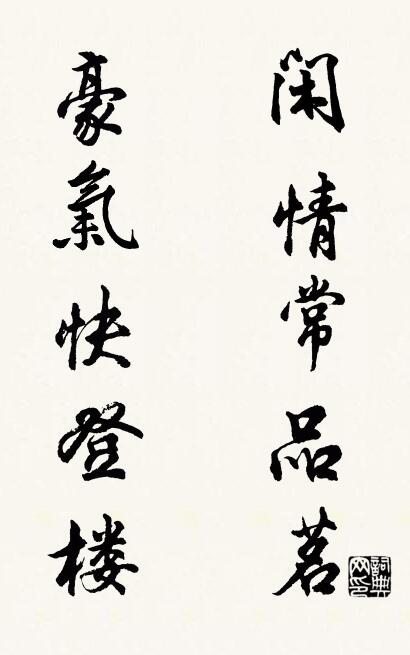 閑情常品茗
豪氣快登楼
詞典网印